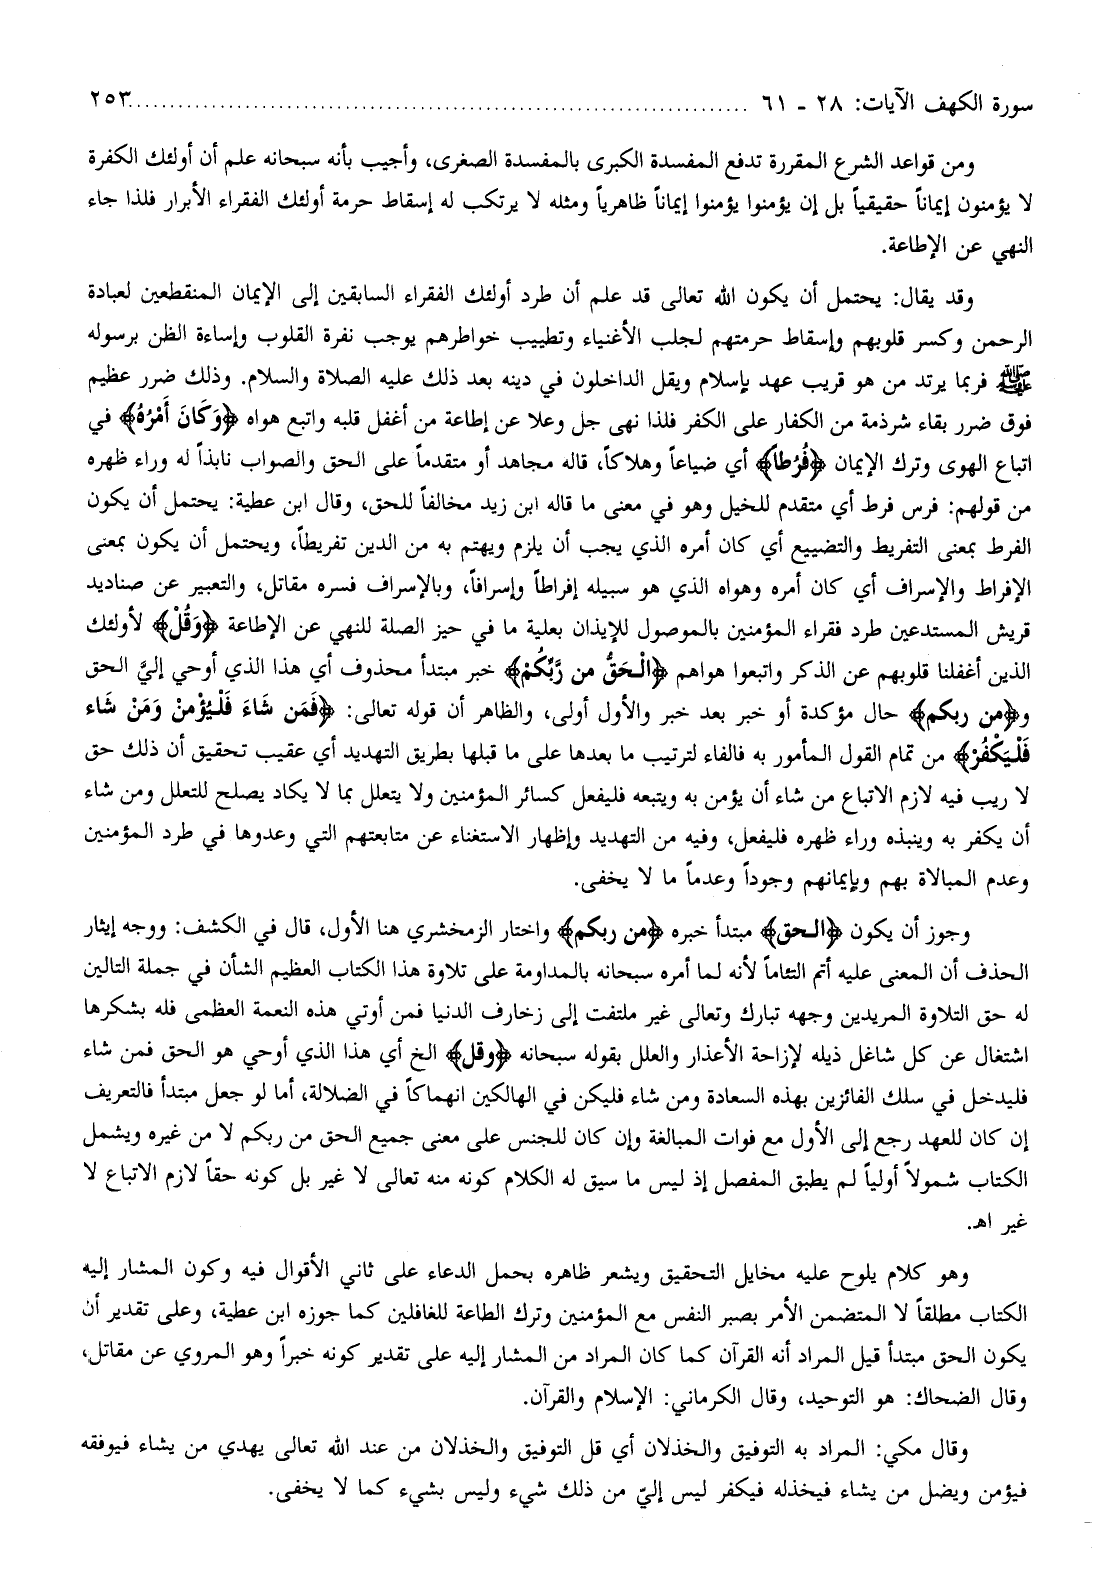 سورة الكهف الآيات: ٢٨ ـ ٦١ ........................................................................ ٢٥٣
ومن قواعد الشرع المقررة تدفع المفسدة الكبرى بالمفسدة الصغرى، وأجيب بأنه سبحانه علم أن أولئك الكفرة
لا يؤمنون إيماناً حقيقياً بل إن يؤمنوا يؤمنوا إيماناً ظاهرياً ومثله لا يرتكب له إسقاط حرمة أولئك الفقراء الأبرار فلذا جاء
النهي عن الإطاعة.
وقد يقال: يحتمل أن يكون الله تعالى قد علم أن طرد أولئك الفقراء السابقين إلى الإيمان المنقطعين لعبادة
الرحمن وكسر قلوبهم وإسقاط حرمتهم لجلب الأغنياء وتطييب خواطرهم يوجب نفرة القلوب وإساءة الظن برسوله
ﷺ فربما يرتد من هو قريب عهد بإسلام ويقل الداخلون في دينه بعد ذلك عليه الصلاة والسلام. وذلك ضرر عظيم
فوق ضرر بقاء شرذمة من الكفار على الكفر فلذا نهى جل وعلا عن إطاعة من أغفل قلبه واتبع هواه ﴿وَكَانَ أَمْرُهُ﴾ في
اتباع الهوى وترك الإيمان ﴿فُرُطاً﴾ أي ضياعاً وهلاكاً، قاله مجاهد أو متقدماً على الحق والصواب نابذاً له وراء ظهره
من قولهم: فرس فرط أي متقدم للخيل وهو في معنى ما قاله ابن زيد مخالفاً للحق، وقال ابن عطية: يحتمل أن يكون
الفرط بمعنى التفريط والتضييع أي كان أمره الذي يجب أن يلزم ويهتم به من الدين تفريطاً، ويحتمل أن يكون بمعنى
الإفراط والإسراف أي كان أمره وهواه الذي هو سبيله إفراطاً وإسرافاً، وبالإسراف فسره مقاتل، والتعبير عن صناديد
قريش المستدعين طرد فقراء المؤمنين بالموصول للإيذان بعلية ما في حيز الصلة للنهي عن الإطاعة ﴿وَقُلْ﴾ لأولئك
الذين أغفلنا قلوبهم عن الذكر واتبعوا هواهم ﴿الْحَقُّ من رَّبِّكُمْ﴾ خبر مبتدأ محذوف أي هذا الذي أوحي إليَّ الحق
و﴿من ربكم﴾ حال مؤكدة أو خبر بعد خبر والأول أولى، والظاهر أن قوله تعالى: ﴿فَمَن شَاءَ فَلْيُؤْمنْ وَمَنْ شَاء
فَلْيَكْفُرْ﴾ من تمام القول المأمور به فالفاء لترتيب ما بعدها على ما قبلها بطريق التهديد أي عقيب تحقيق أن ذلك حق
لا ريب فيه لازم الاتباع من شاء أن يؤمن به ويتبعه فليفعل كسائر المؤمنين ولا يتعلل بما لا يكاد يصلح للتعلل ومن شاء
أن يكفر به وينبذه وراء ظهره فليفعل، وفيه من التهديد وإظهار الاستغناء عن متابعتهم التي وعدوها في طرد المؤمنين
وعدم المبالاة بهم وبإيمانهم وجوداً وعدماً ما لا يخفى.
وجوز أن يكون ﴿الحق﴾ مبتدأ خبره ﴿من ربكم﴾ واختار الزمخشري هنا الأول، قال في الكشف: ووجه إيثار
الحذف أن المعنى عليه أتم التئاماً لأنه لما أمره سبحانه بالمداومة على تلاوة هذا الكتاب العظيم الشأن في جملة التالين
له حق التلاوة المريدين وجهه تبارك وتعالى غير ملتفت إلى زخارف الدنيا فمن أوتي هذه النعمة العظمى فله بشكرها
اشتغال عن كل شاغل ذيله لإزاحة الأعذار والعلل بقوله سبحانه ﴿وقل﴾ الخ أي هذا الذي أوحي هو الحق فمن شاء
فليدخل في سلك الفائزين بهذه السعادة ومن شاء فليكن في الهالكين انهماكاً في الضلالة، أما لو جعل مبتدأ فالتعريف
إن كان للعهد رجع إلى الأول مع فوات المبالغة وإن كان للجنس على معنى جميع الحق من ربكم لا من غيره ويشمل
الكتاب شمولاً أولياً لم يطبق المفصل إذ ليس ما سيق له الكلام كونه منه تعالى لا غير بل كونه حقاً لازم الاتباع لا
غير اهـ.
وهو كلام يلوح عليه مخايل التحقيق ويشعر ظاهره بحمل الدعاء على ثاني الأقوال فيه وكون المشار إليه
الكتاب مطلقاً لا المتضمن الأمر بصبر النفس مع المؤمنين وترك الطاعة للغافلين كما جوزه ابن عطية، وعلى تقدير أن
يكون الحق مبتدأ قيل المراد أنه القرآن كما كان المراد من المشار إليه على تقدير كونه خبراً وهو المروي عن مقاتل،
وقال الضحاك: هو التوحيد، وقال الكرماني: الإسلام والقرآن.
وقال مكي: المراد به التوفيق والخذلان أي قل التوفيق والخذلان من عند الله تعالى يهدي من يشاء فيوفقه
فيؤمن ويضل من يشاء فيخذله فيكفر ليس إليّ من ذلك شيء وليس بشيء كما لا يخفى.